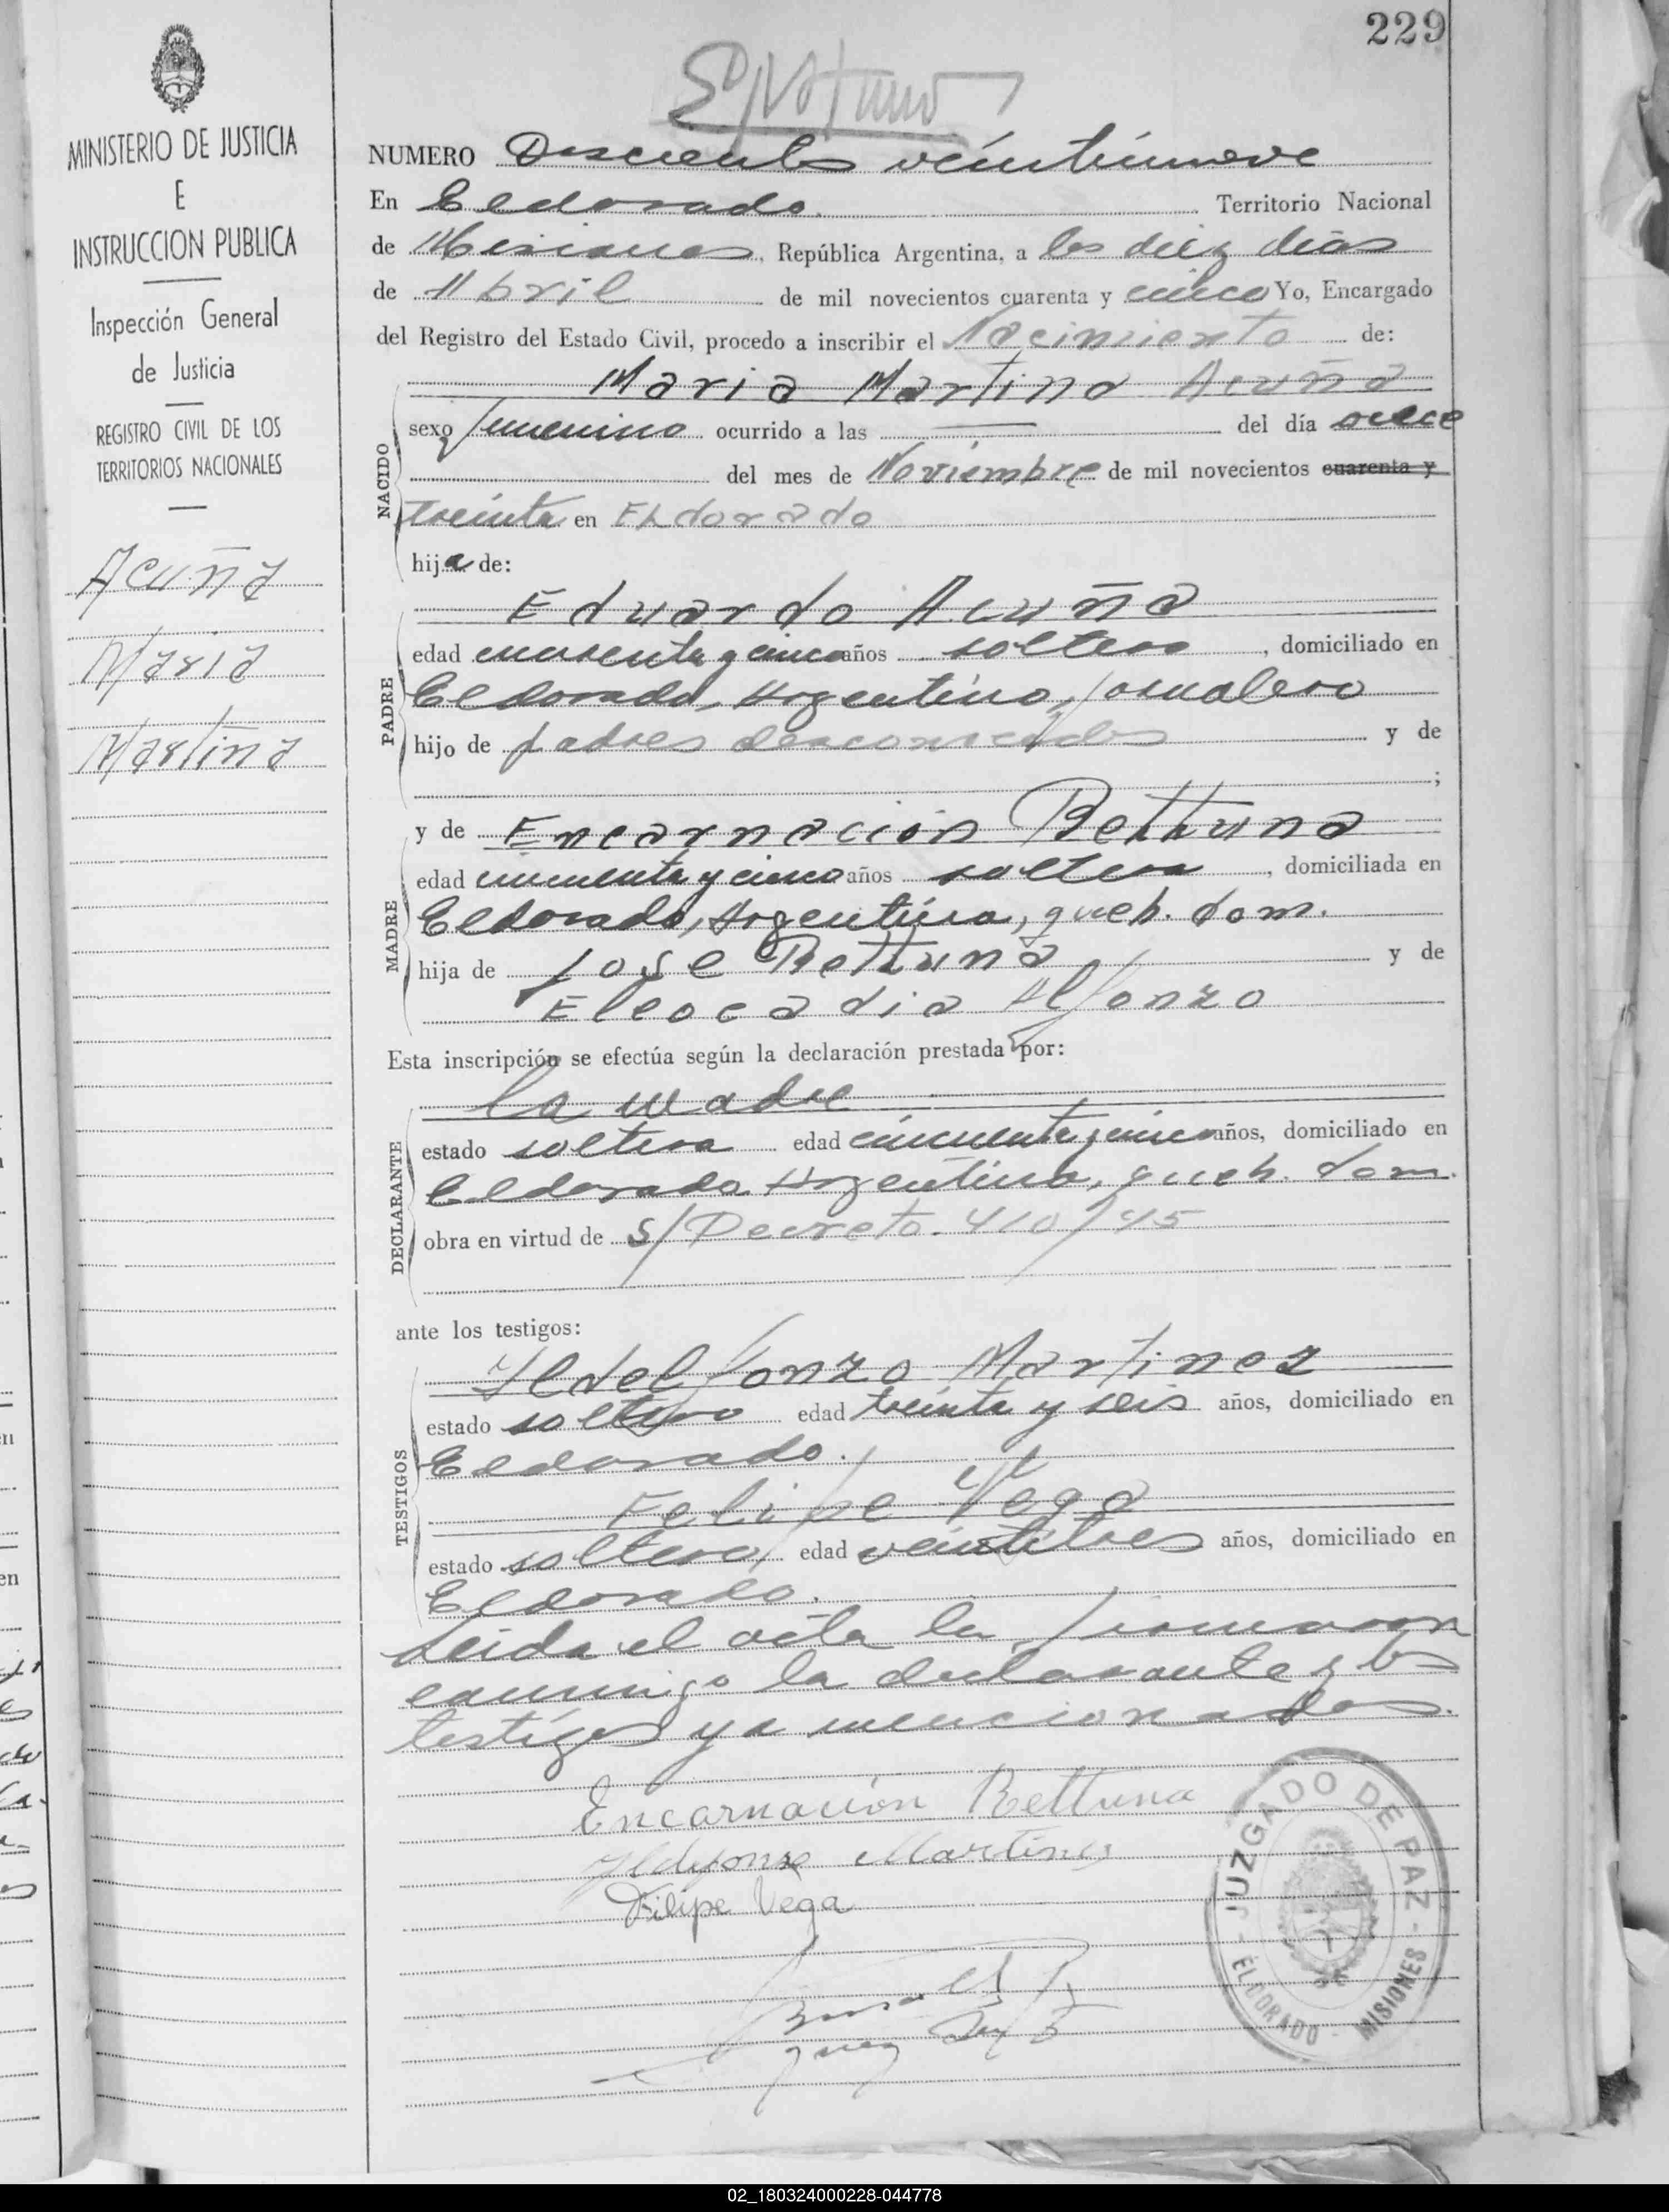 229
MINISTERIO DE JUSTICIA
E
INSTRUCCION PUBLICA
Inspección General
de Justicia
REGISTRO CIVIL DE LOS
TERRITORIOS NACIONALES
Acuña
Maria
Martina
NUMERO Doscientos veintinueve
En Eldorado. Territorio Nacional
de Misiones, República Argentina, a los diez dias
de Abril de mil novecientos cuarenta y cinco Yo, Encargado
del Registro del Estado Civil, procedo a inscribir el Nacimiento de:
NACIDO
Maria Martina Acuña
sexo femenino ocurrido a las — del día once
del mes de Noviembre de mil novecientos cuarenta y
treinta en Eldorado
hija de:
PADRE
Eduardo Acuña
edad cuarenta y cinco años soltero, domiciliado en
Eldorado, Argentino, jornalero
hijo de padres desconocidos y de
;
MADRE
y de Encarnación Rettuna
edad cincuenta y cinco años soltera, domiciliada en
Eldorado, Argentina, queh. dom.
hija de Jose Rettuna y de
Eleocadia Alfonzo
Esta inscripción se efectúa según la declaración prestada por:
DECLARANTE
la madre
estado soltera edad cincuenta y cinco años, domiciliado en
Eldorado Argentina, queh. dom.
obra en virtud de S/ Decreto. 410/45
ante los testigos:
TESTIGOS
Ildelfonzo Martinez
estado soltero edad treinta y seis años, domiciliado en
Eldorado.
Felipe Vega
estado soltero, edad veintitres años, domiciliado en
Eldorado.
Leida el acta la firmaron
conmigo la declarante y los
testigos ya mencionados.
Encarnación Rettuna
Ildefonso Martinez
Filipe Vega
JUZGADO DE PAZ - MISIONES
- ELDORADO -
02_180324000228-044778